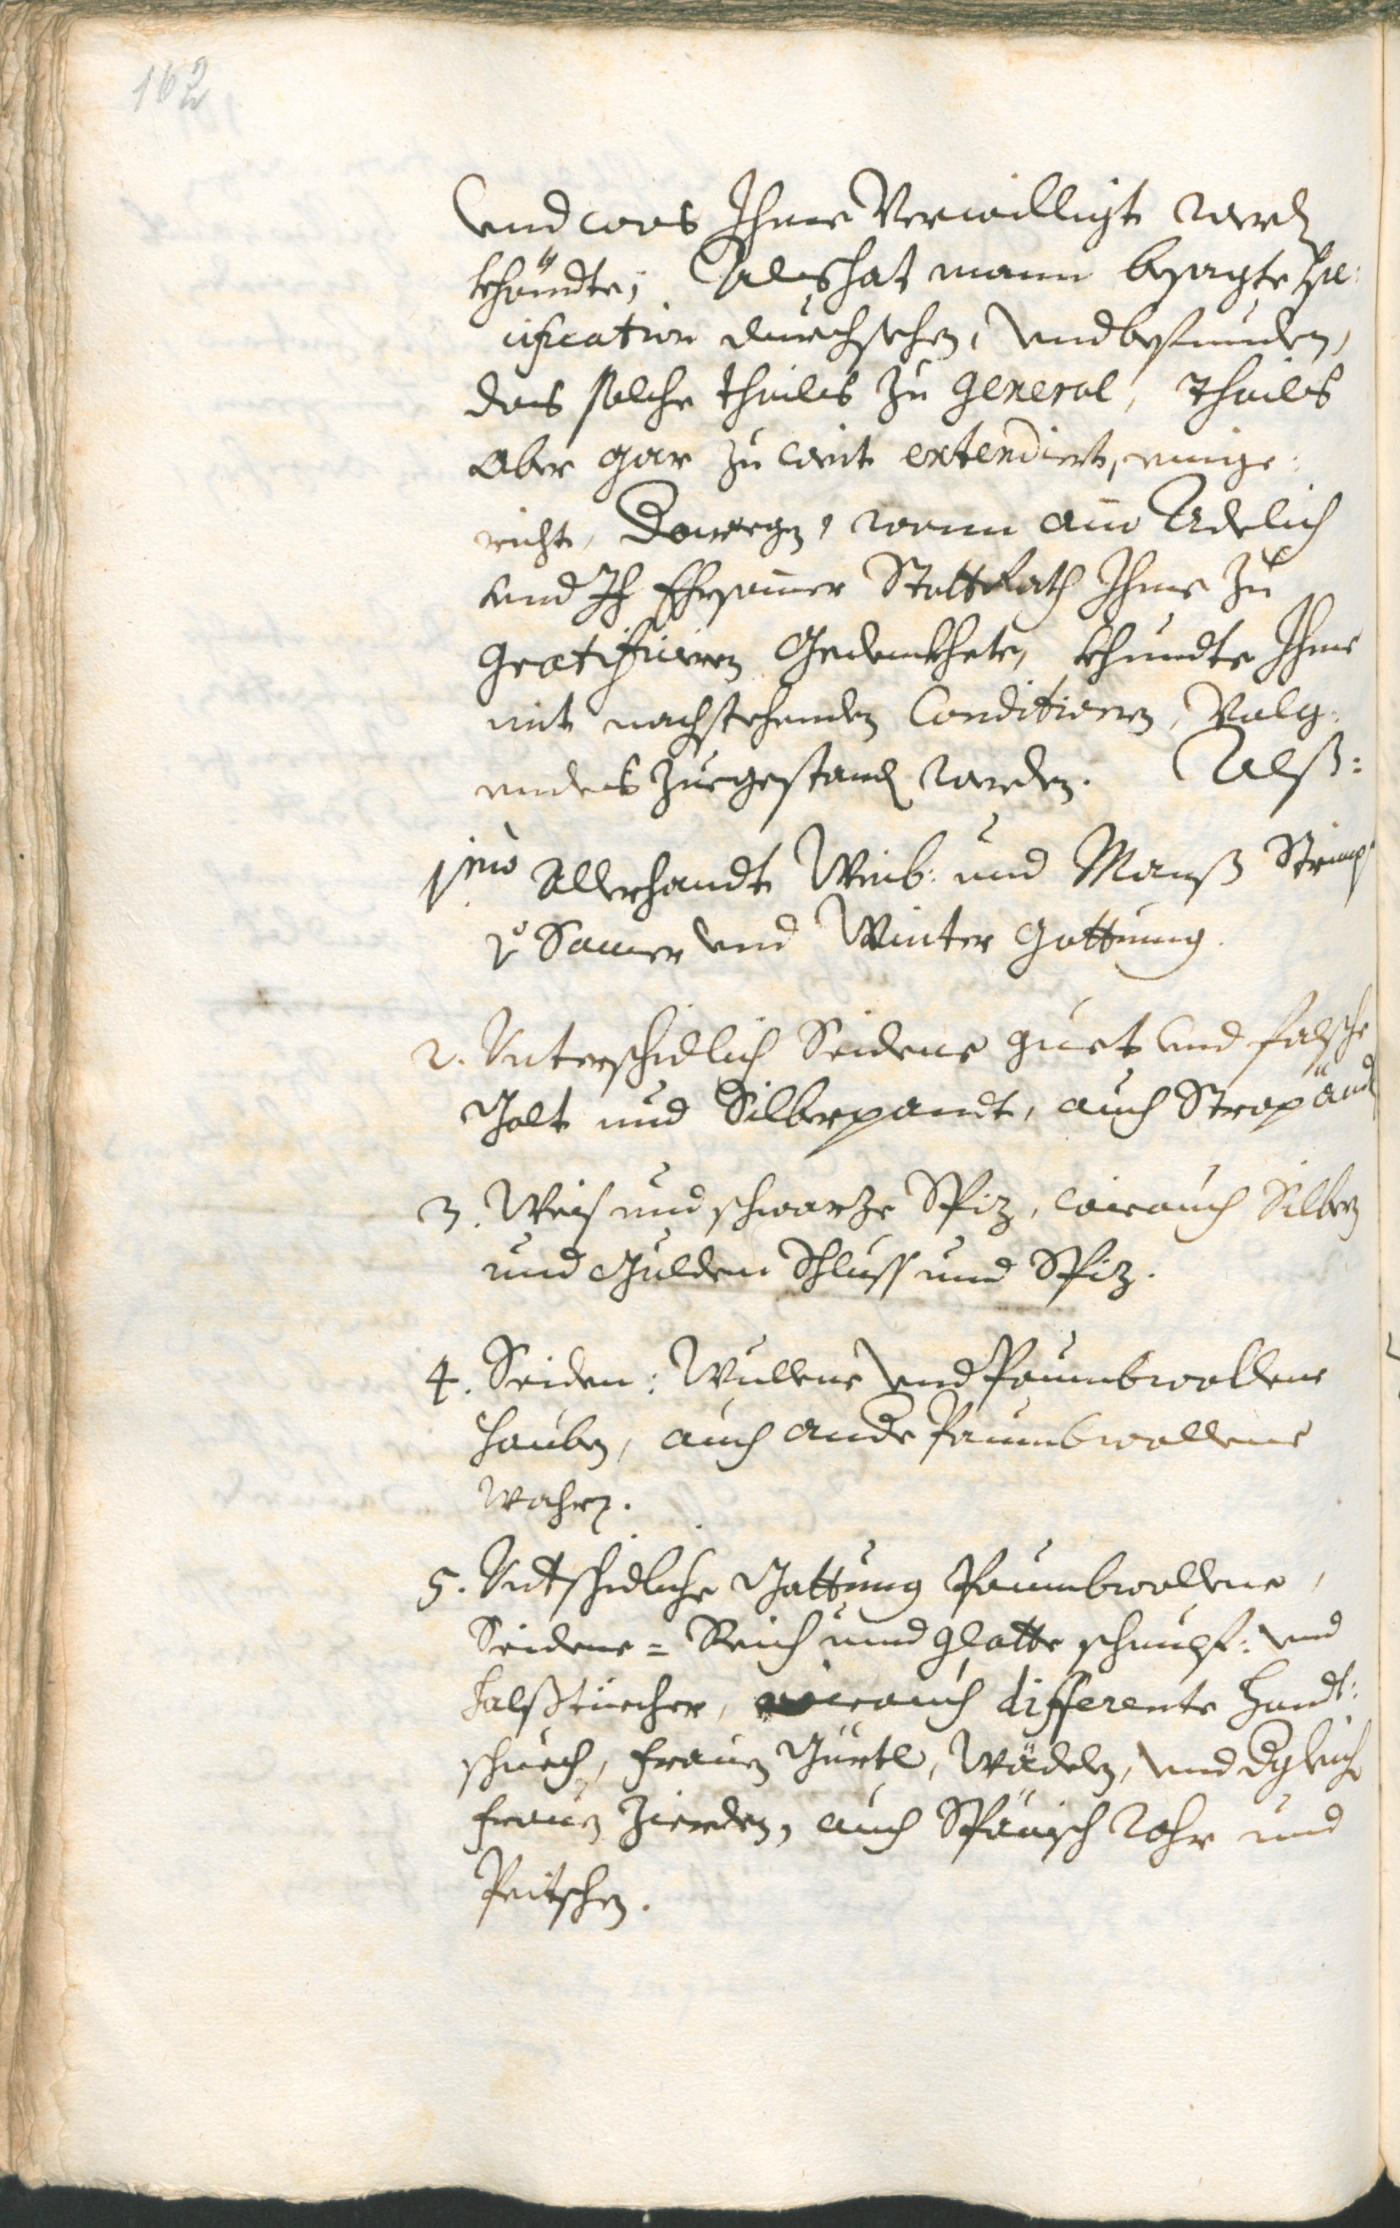 162
und was Ihme Verwilligt werd
khöndte; Als hat mann besagte Spe:
cification durchsehen, und befunden,
das solche theils zu general, theils
aber gar zu weit extendiert, einge:
richt, Derweg, wann ain Adelich
und Ehrsamer StattRath Ihme zu
gratificieren gedenkhete, khundte Ihme
mit nachstehenden Conditionen, Volg:
endes zuegestand werden. Alß:
1mo Allerhandt Weib: und Manß Strimpf
Somer und Winter gattung.
2. Unterschidlich Seidene guet und falsche
Golt und Silberpandt, auch Stropänd
3. Weis und schwarze Spiz, wie auch Silber
und Gulden Schluss und Spiz.
4. Seiden: Wullene und Paumbwollene
Hauben, auch ande Paumbwollene
Wahren.
5. Untschidliche Gattung Paumbwollene,
Seidene= Reich und glatte schnupf: und
Halßtüecher, wie auch differente Handt:
schuech, frauen Gürtl, Wädeln, und dgleich
frauen Zierden, auch Spänisch Rohr und
Peitschen.